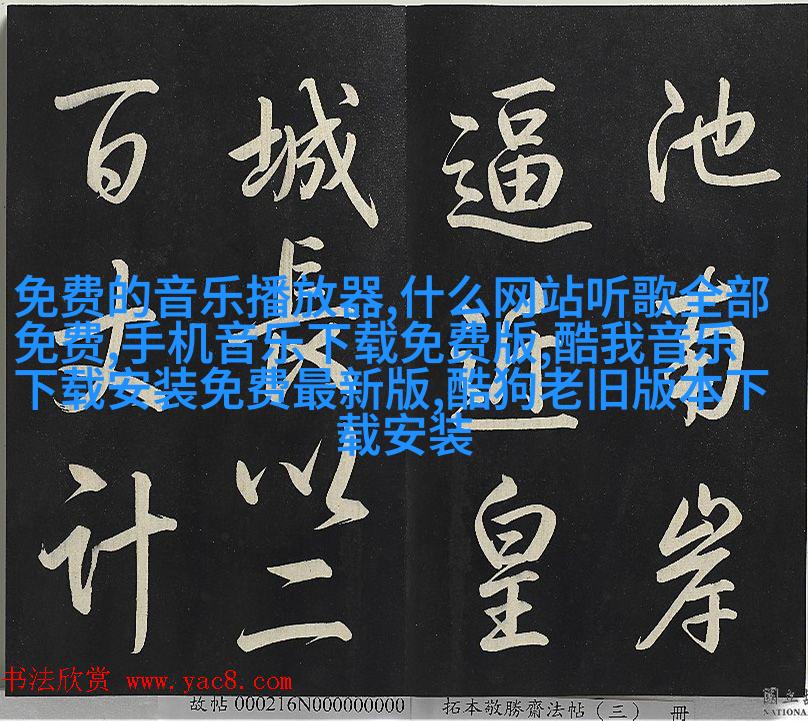 池南岸
逼近皇
城長以二
百丈計
免费的音乐播放器,什么网站听歌全部
免费,手机音乐下载免费版,酷我音乐
下载安装免费最新版,酷狗老旧版本下
载安装
书法欣赏 www.yac8.com
故帖 000216N000000000 拓本敬勝齋法帖（三） 册
國立
NATIONA